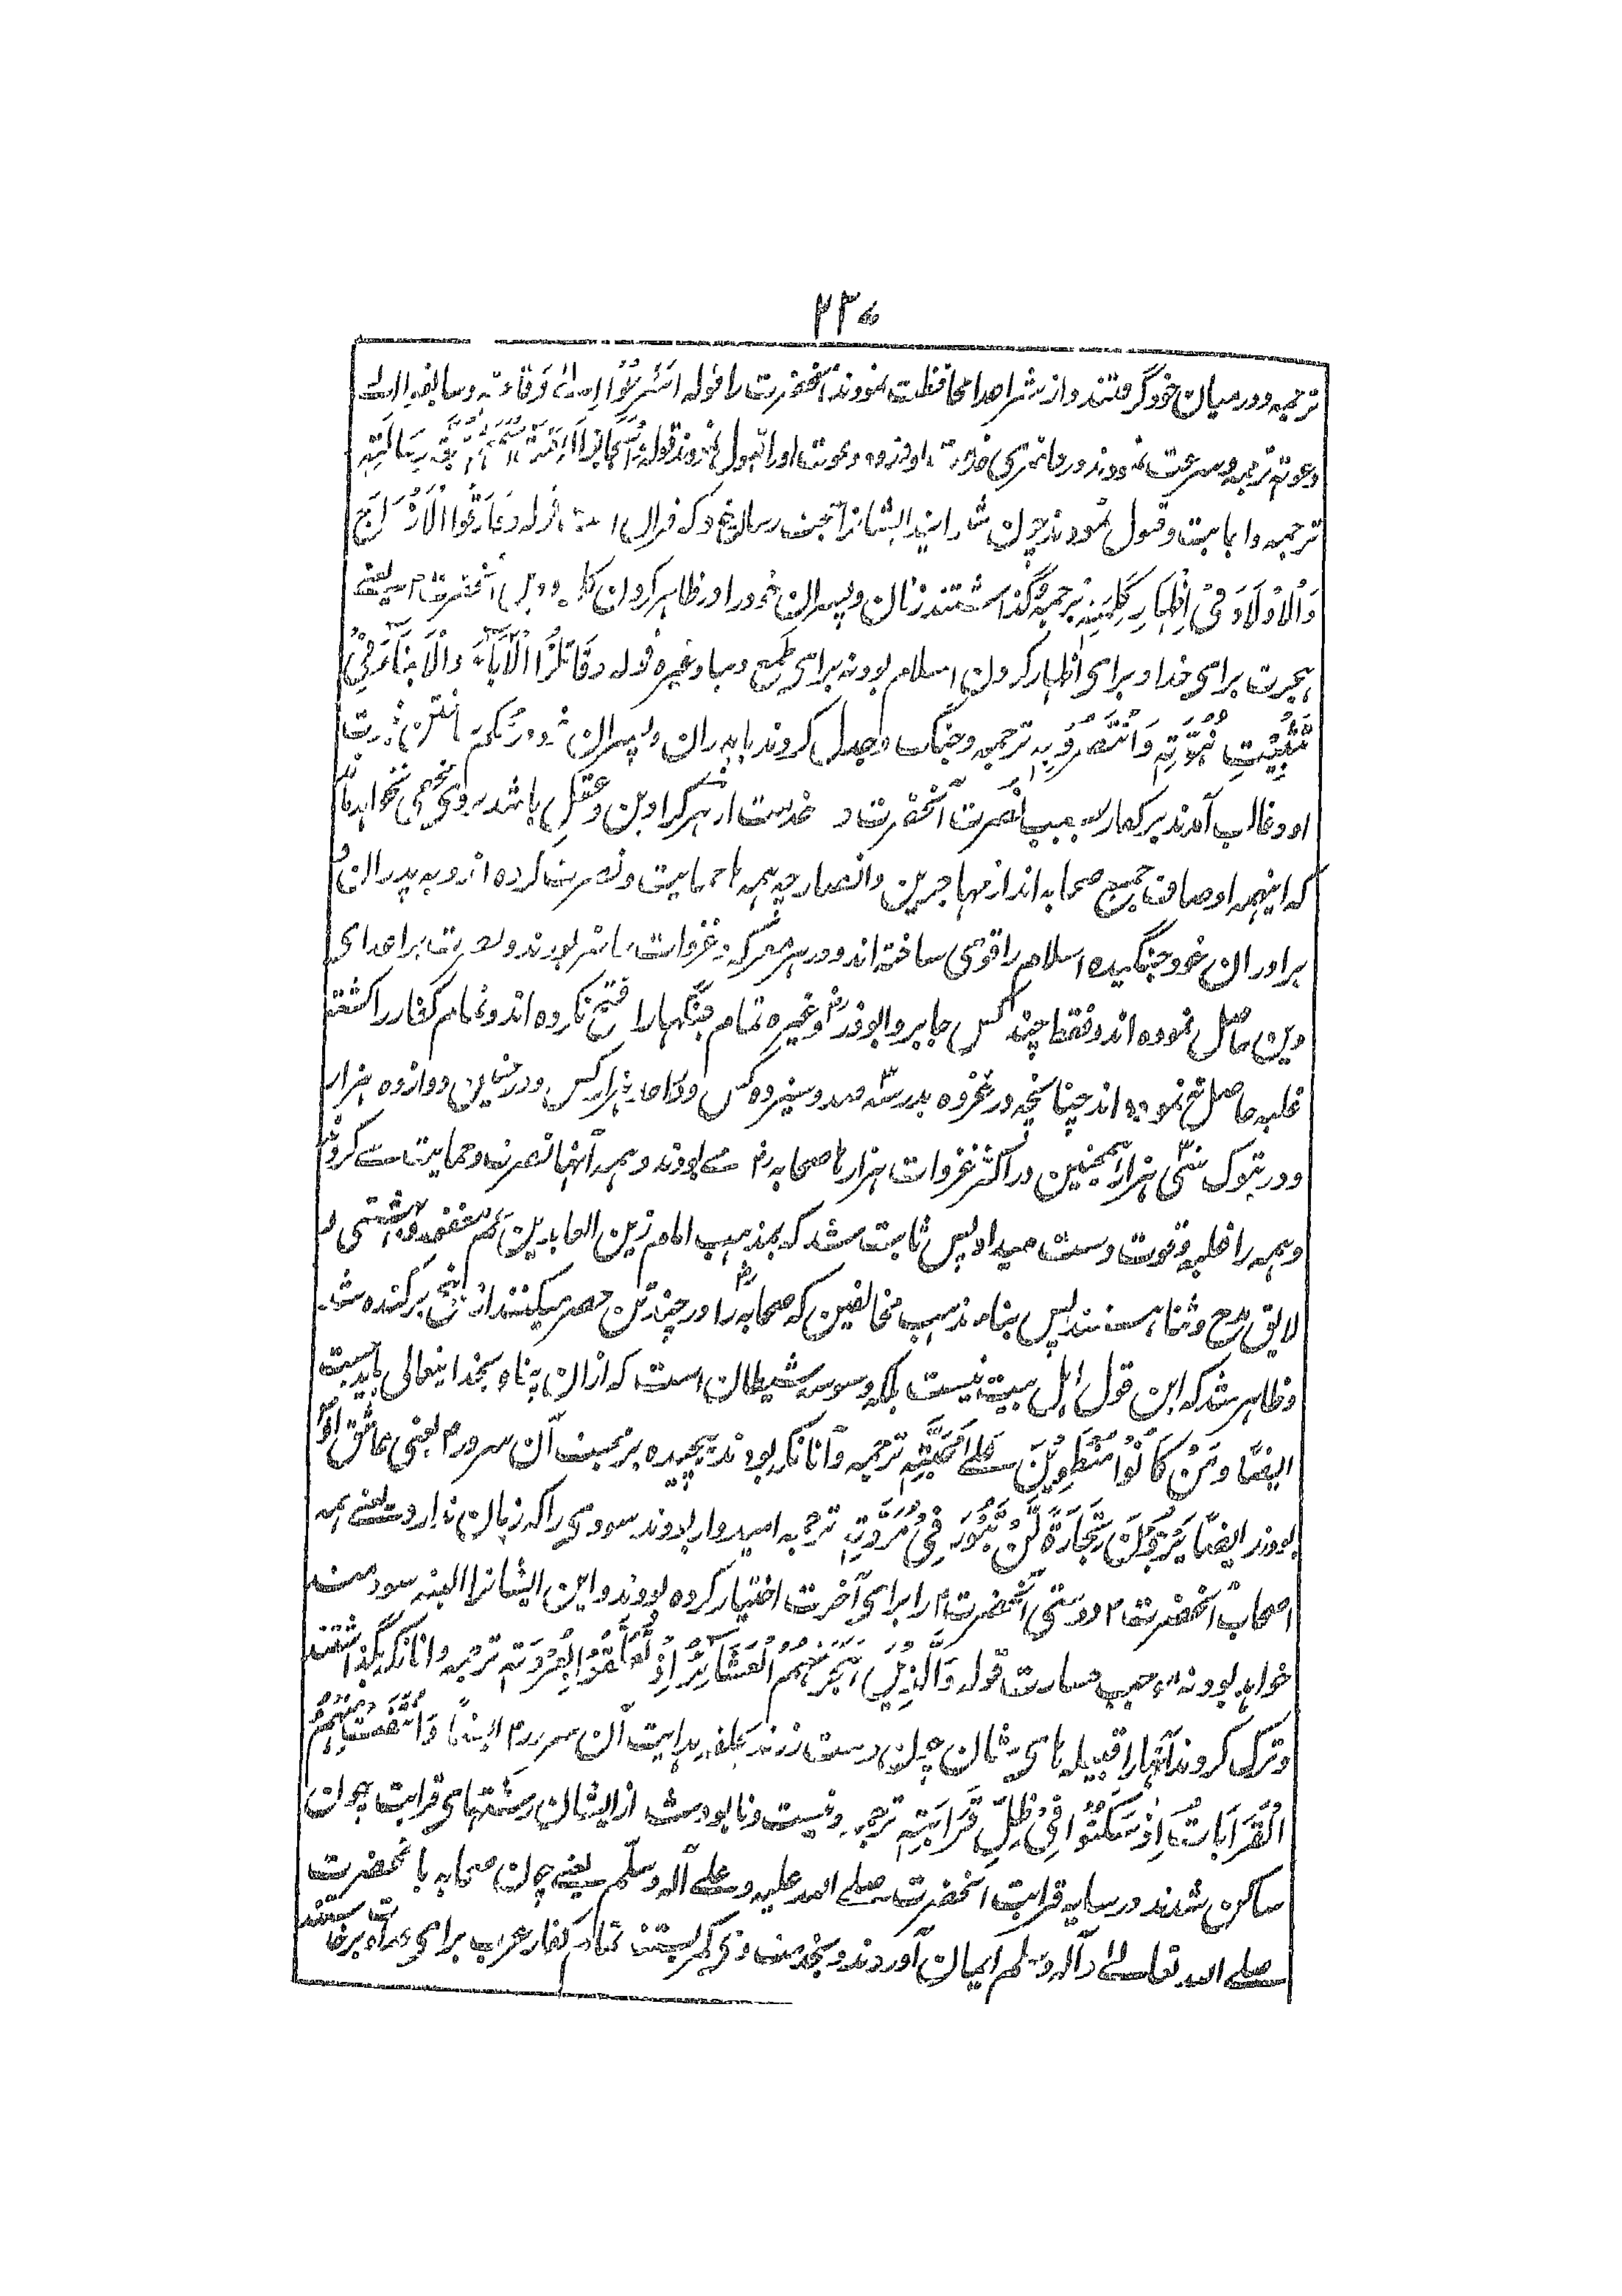 ترجمه و در میان خود گرفتند و از شر اعدا محافظت نمودند آنحضرت را قوله اَسْرَعُوْا اِلٰی وَفَادَتِهٖ وسابقوا الی
دعوتهٖ ترجمه و سرعت نمودند در او نزد و دعوت او را قبول نمودند قوله رِسَالَتِهٖ
ترجمه و اجابت و قبول نمودند چون شنوانید ایشانرا حجت رسالت خود که قوله وَفَارَقُوا الْاَزْوَاجَ
وَالْاَوْلَادَ فِیْ اِظْهَارِ کَلِمَتِهٖ ترجمه و گذاشتند زنان و پسران خود را در ظاهر کردن کلمه آنحضرت م یعنے
هجرت برای خدا و برای اظهار کردن اسلام بود نه برای طمع دنیا وغیره قوله وَقَاتَلُوا الْاٰبَآءَ وَالْاَبْنَآءَ فِیْ
تَثْبِیْتِ نُبُوَّتِهٖ وَانْتَصَرُوْبِهٖ ترجمه و جنگ و جدل کردند با پدران و پسران خود
او و غالب آمدند بر کفار بسبب نصرت آنحضرت هر کرا دین و عقل باشد بروی مخفی نخواهد ماند
که اینهمه اوصاف جمیع صحابه اند از مهاجرین و انصار چه همه ها حمایت و نصرت کرده اند و به پدران و
برادران خود جنگیده اسلام را قوی ساخته اند و در هر معرکه و غزوات حاضر بودند و نصرت بر اعدای
دین حاصل نموده اند و فقط چند کس جابر و ابوذر رض وغیره تمام جنگها را فتح نکرده اند و تمام کفار را کشته
غلبه حاصل نه نموده اند چنانچه در غزوه بدر سه صد و سیزده کس و در احد هزار کس و در حنین دوازده هزار
و در تبوک سی هزار همچنین در اکثر غزوات هزارها صحابه رض مے بودند و همه آنها نصرت و حمایت مے کردند
و همه را غلبه و قوت دست میداد پس ثابت شد که بمذهب امام زین العابدین همه مغفور و بهشتی و
لایق مدح و ثنا هستند پس بناء مذهب مخالفین که صحابه رض را در چند تن حصر میکنند از بیخ برکنده شد
و ظاهر شد که این قول اهل بیت نیست بلکه وسوسه شیطان است که ازان پناه بخدا یتعالی باید جست
ایضًا وَمَنْ کَانُوْا مُنْطَوِیْنَ عَلٰے مَحَبَّتِهٖ ترجمه و آنانکه بودند پیچیده بر محبت آن سرور م یعنی عاشق او
بودند ایضًا یَرْجُوْنَ تِجَارَةً لَّنْ تَبُوْرَ فِیْ مَوَدَّتِهٖ ترجمه امیدوار بودند سودی را که زیان ندارد یعنے همه
اصحاب آنحضرت م دوستی آنحضرت م را برای آخرت اختیار کرده بودند و این ایشانرا البته سودمند
خواهد بود نه موجب خسارت قوله وَالَّذِیْنَ هَجَرَتْهُمُ الْعَشَآئِرُ اِذْ تَعَلَّقُوْا بِعُرْوَتِهٖ ترجمه و آنانکه بگذاشتند
و ترک کردند آنها را قبیله های شان چون دست زدند بحلقه هدایت آن سرور م ایضًا وَانْتَفَتْ مِنْهُمُ
الْقَرَابَاتُ اِذْ سَکَنُوْا فِیْ ظِلِّ قَرَابَتِهٖ ترجمه و نیست و نابود شد از ایشان رشتهای قرابت چون
ساکن شدند در سایه قرابت آنحضرت صلے الله علیه و علے آله وسلم یعنے چون صحابه با آنحضرت
صلے الله تعالے و آله وسلم ایمان آوردند و بخدمت وی کمر بستند تمام کفار عرب برای عداوت برخاستند